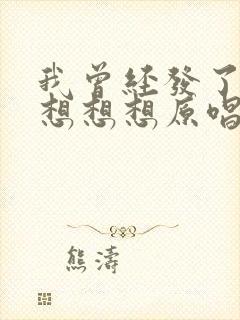 我曾经發了
想想想原唱
熊濤